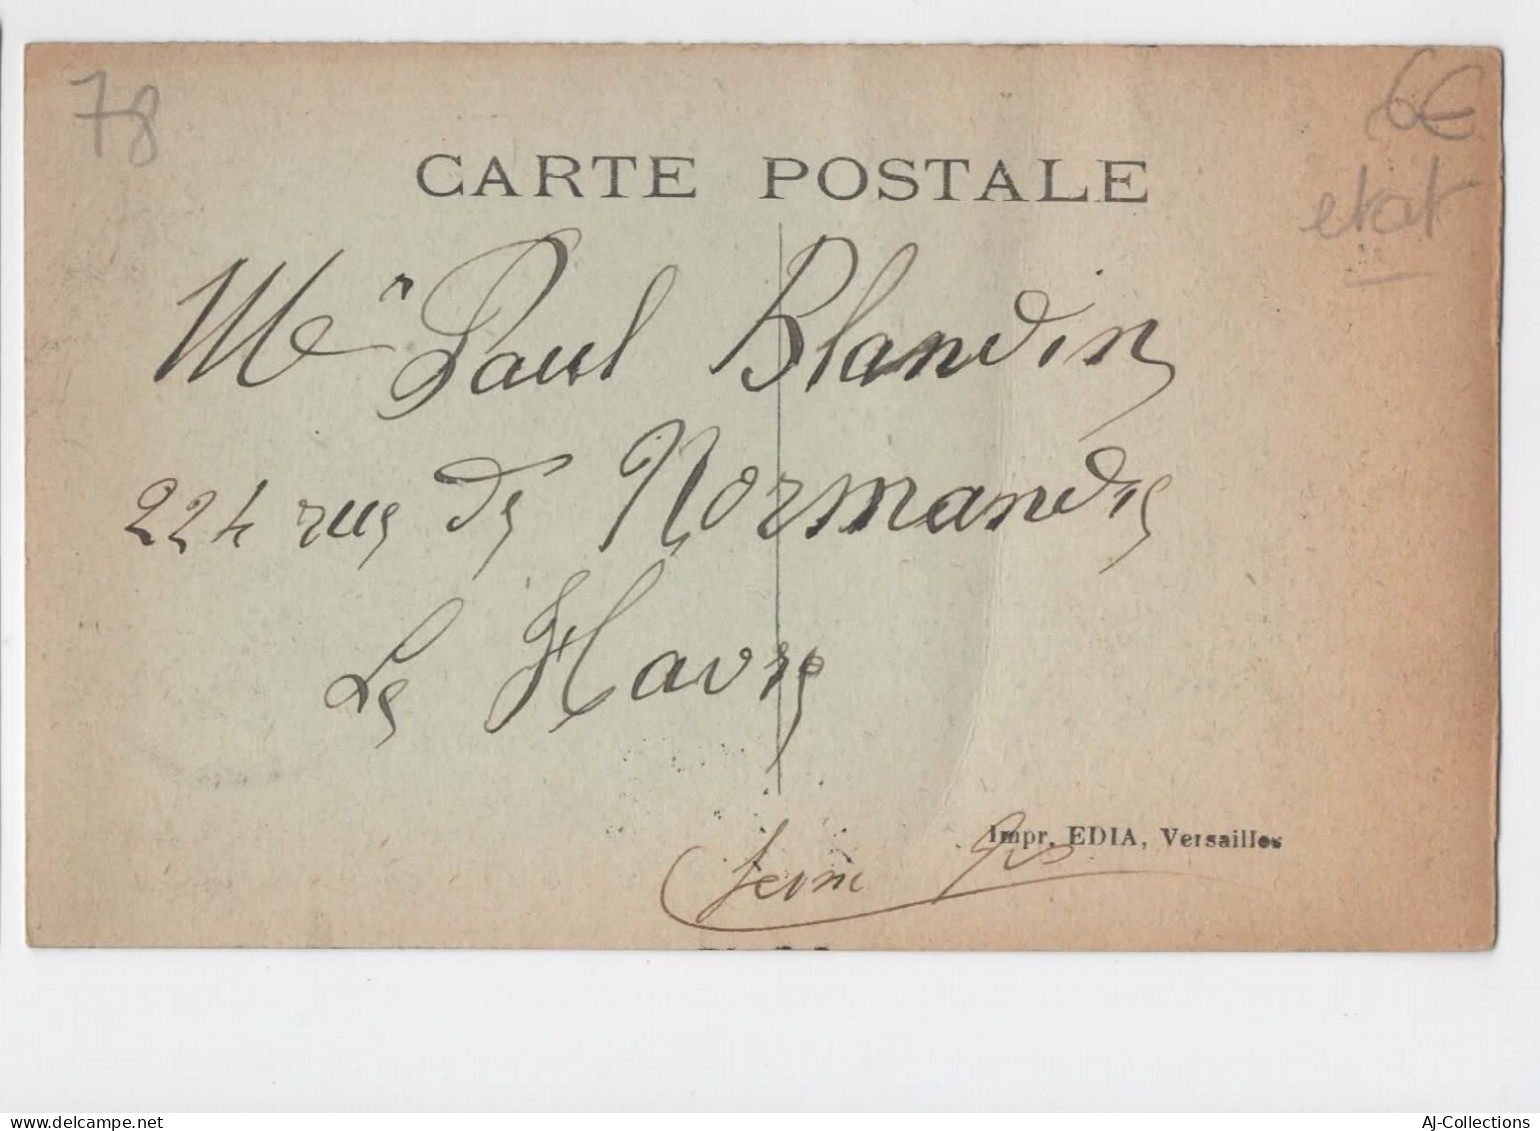 78
6€
etat
CARTE POSTALE
Mr Paul Blandin
224 rue de Normandie
Le Havre
Impr. EDIA, Versailles
delcampe.net
AJ-Collections